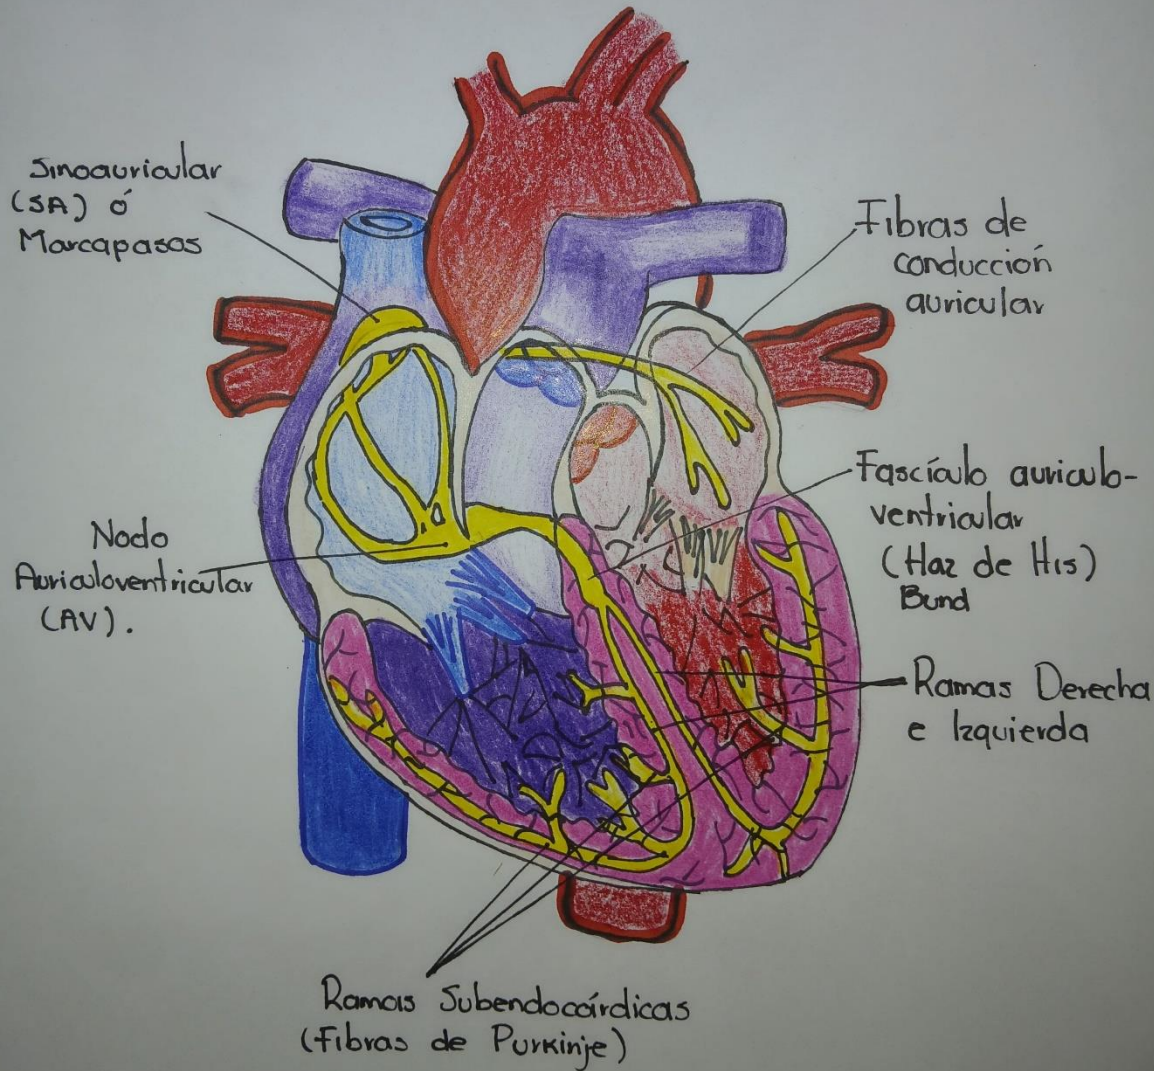 Sinoauricular
(SA) ó
Marcapasos
Fibras de
conducción
auricular
Nodo
Auriculoventricular
(AV).
Fascículo auriculo-
ventricular
(Haz de His)
Bund
Ramas Derecha
e Izquierda
Ramas Subendocárdicas
(Fibras de Purkinje)